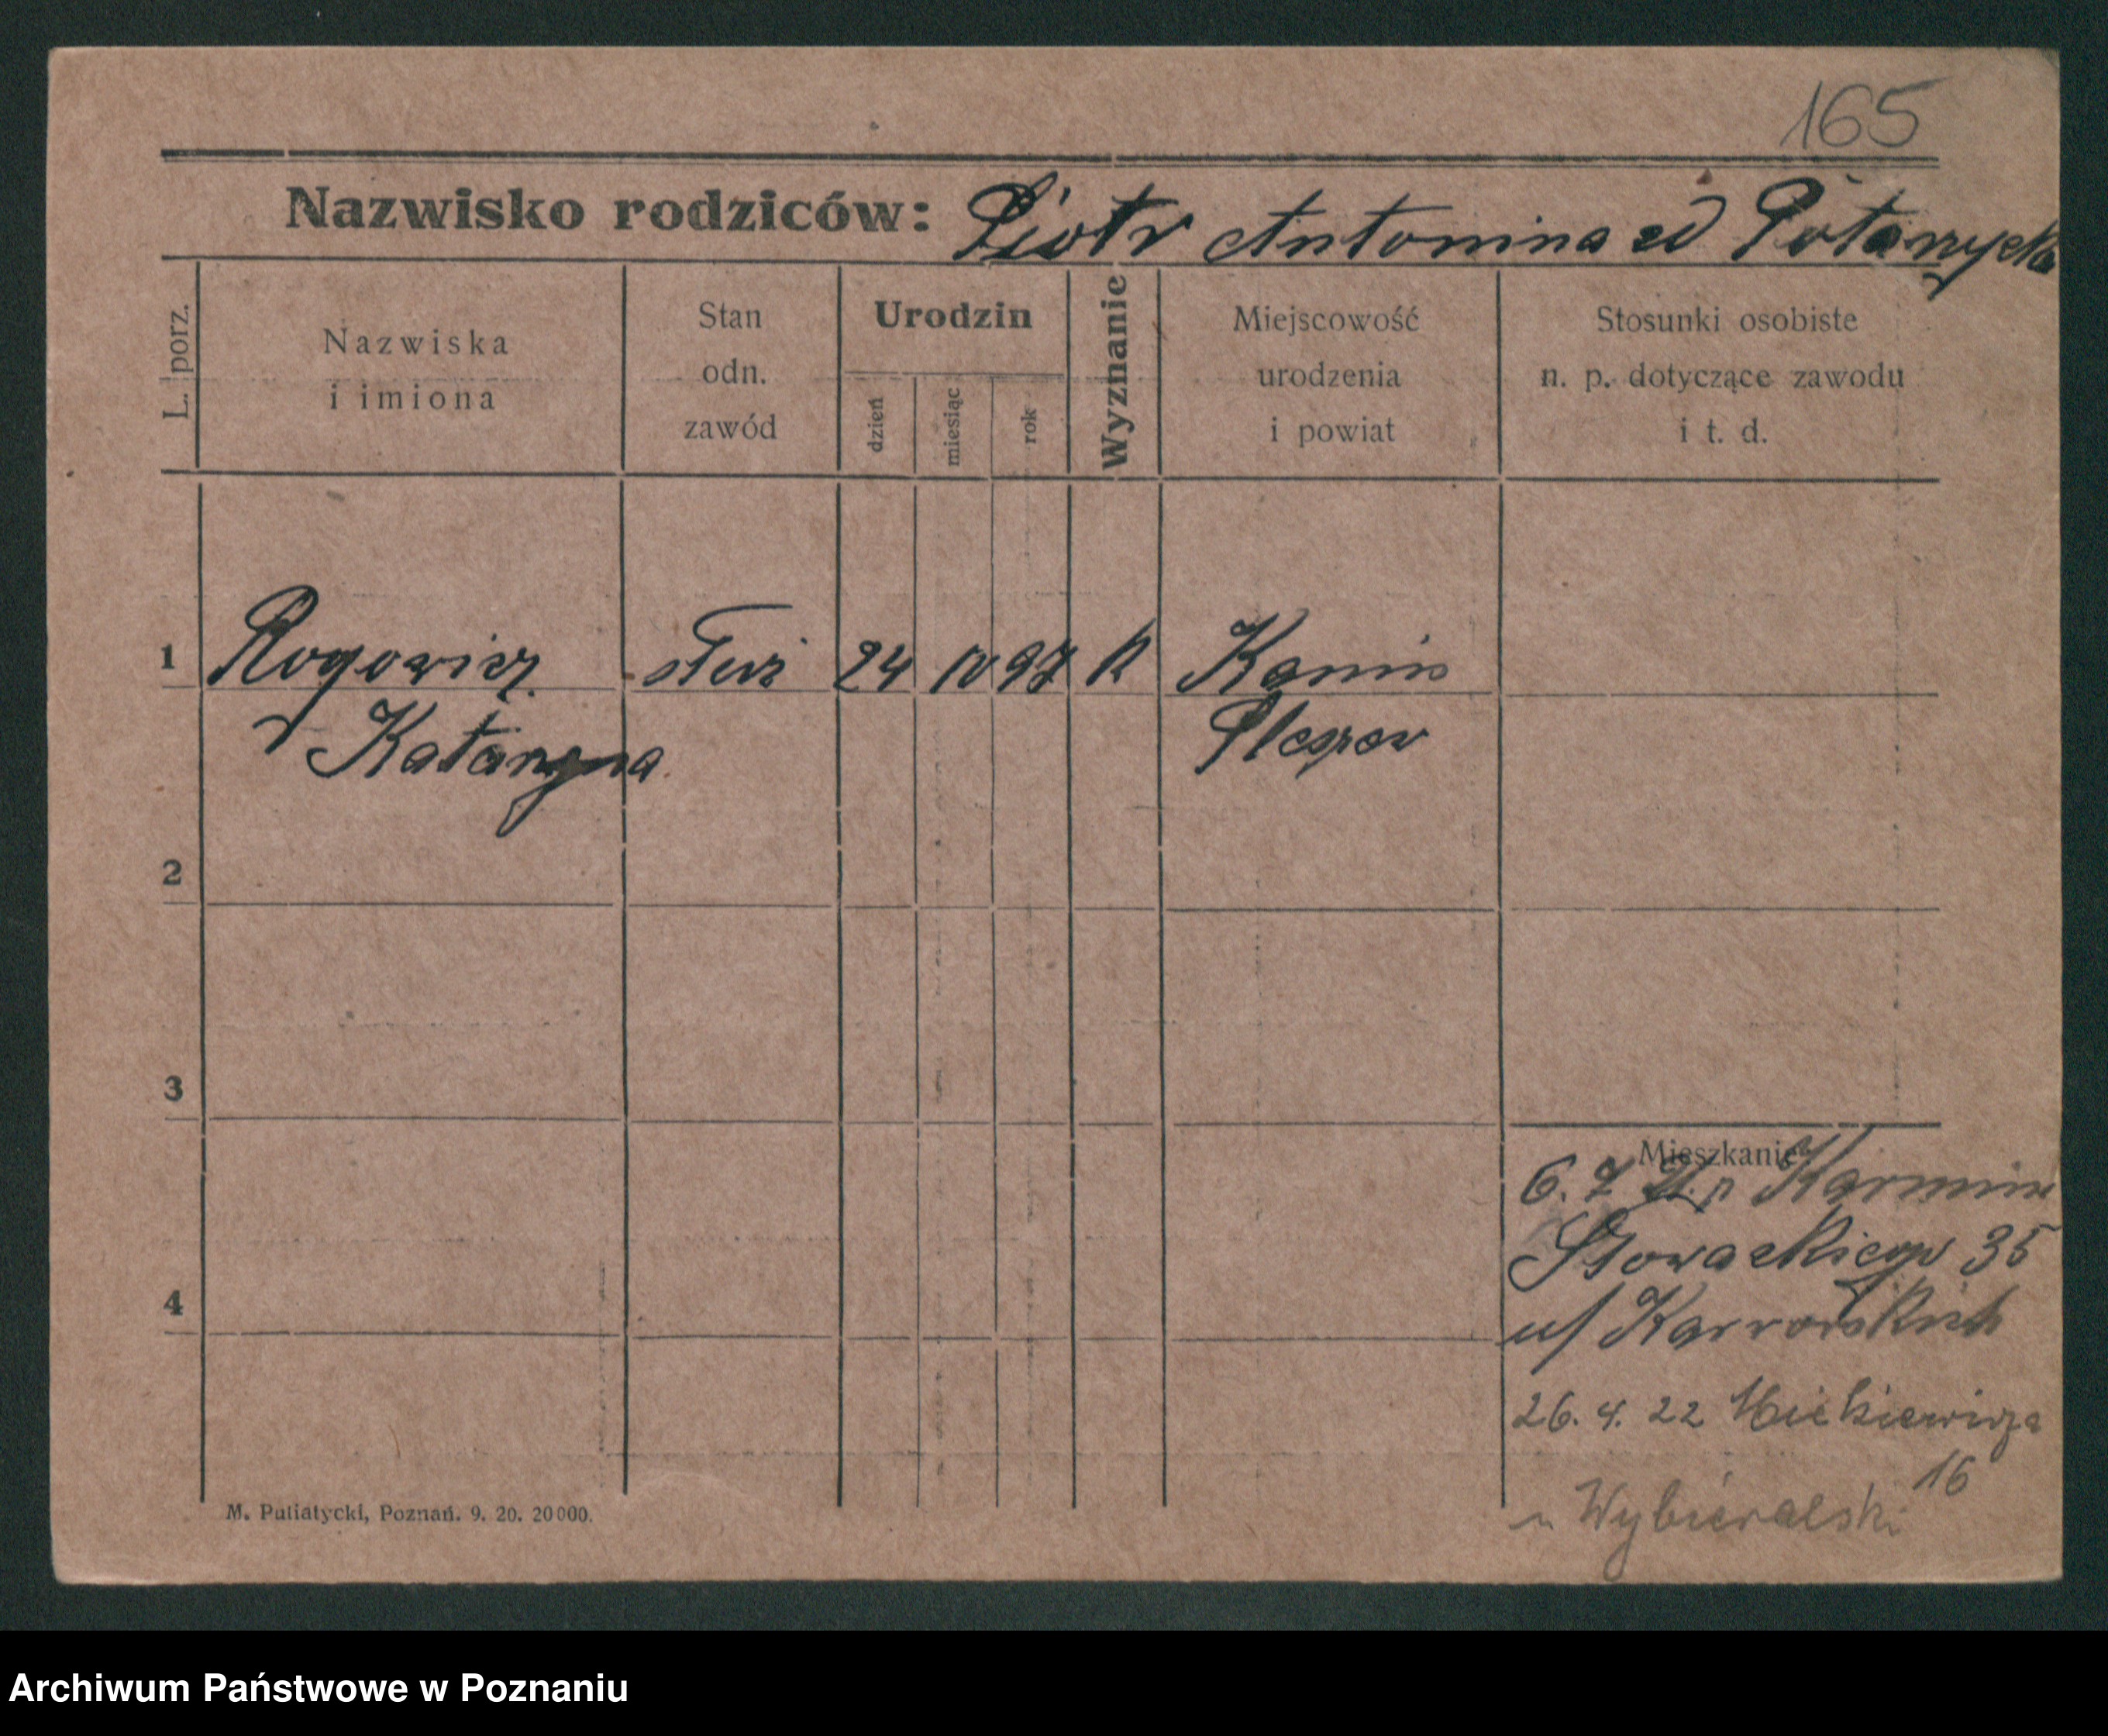 165
Nazwisko rodziców: Piotr Antonina
L. porz.
Nazwiska i imiona
Stan odn. zawód
Urodzin
dzień
miesiąc
rok
Wyznanie
Miejscowość urodzenia i powiat
Stosunki osobiste n. p. dotyczące zawodu i t. d.
1 Rogowicz 24 IV 97 K Kamin
Katarzyna
2
3
4
Mieszkanie
6. 7 Karmin
Słowackiego 35
u/
26. 4. 22 Mickiewicza
16
Wybieralski
M. Putiatycki, Poznań. 9. 20. 20000.
Archiwum Państwowe w Poznaniu